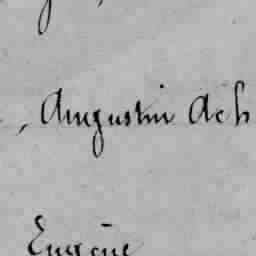 , Augustin Ach
Eugène